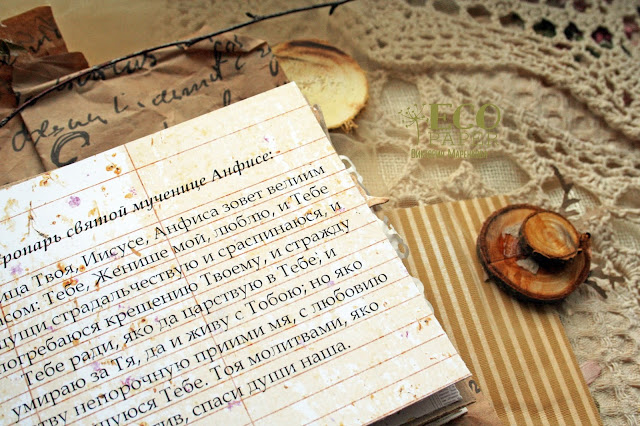 ропарь святой мученице Анфисе:
ица Твоя, Иисусе, Анфиса зовет велиим
сом: Тебе, Женише мой, люблю, и Тебе
щущи страдальчествую и сраспинаюся, и
погребаюся крещению Твоему, и стражду
Тебе ради, яко да царствую в Тебе; и
умираю за Тя, да и живу с Тобою; но яко
тву непорочную приими мя, с любовию
нуюся Тебе. Тоя молитвами, яко
тив, спаси души наша.
ECO